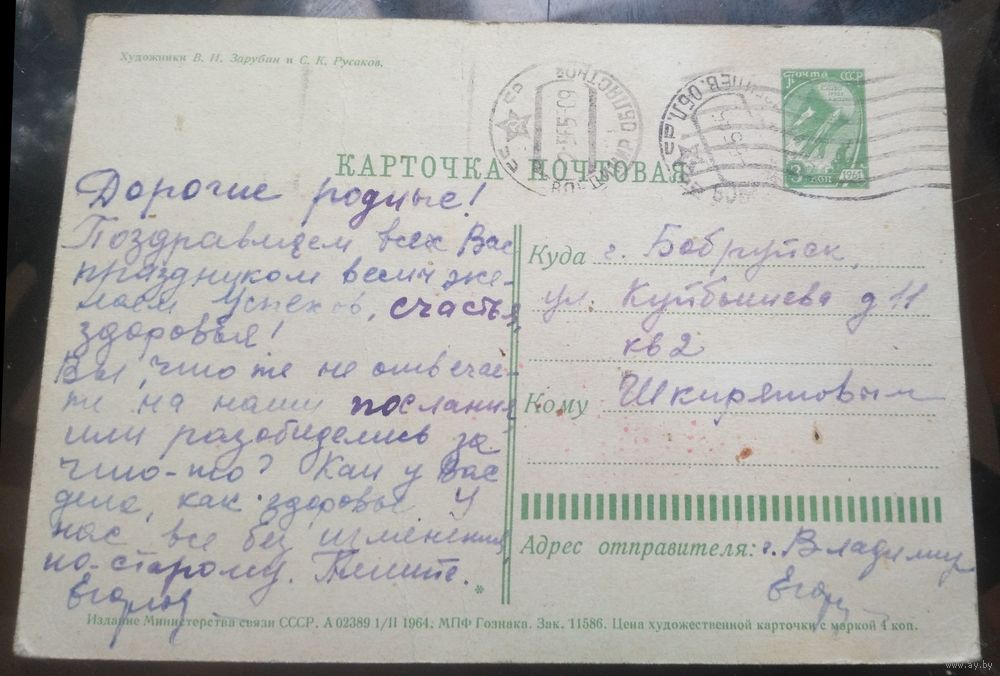 Художники В. И. Зарубин и С. К. Русаков.
ПОЧТА СССР
1961
КАРТОЧКА ПОЧТОВАЯ
Дорогие родные!
Поздравляем всех Вас
праздником
желаем успехов, счастья,
здоровья!
Вы, что же не отвечае-
те на наши послания
или разобиделись за
что-то? Как у Вас
дела, как здоровье У
нас все без изменений
по-старому. Пишите.
Егоровы
Куда г. Бобруйск,
ул Куйбышева д 11
кв 2
Кому Шкирятовым
Адрес отправителя: г. Владимир
*
Издание Министерства связи СССР. А 02389 1/II 1964. МПФ Гознака. Зак. 11586. Цена художественной карточки с маркой 4 коп.
www.ay.by